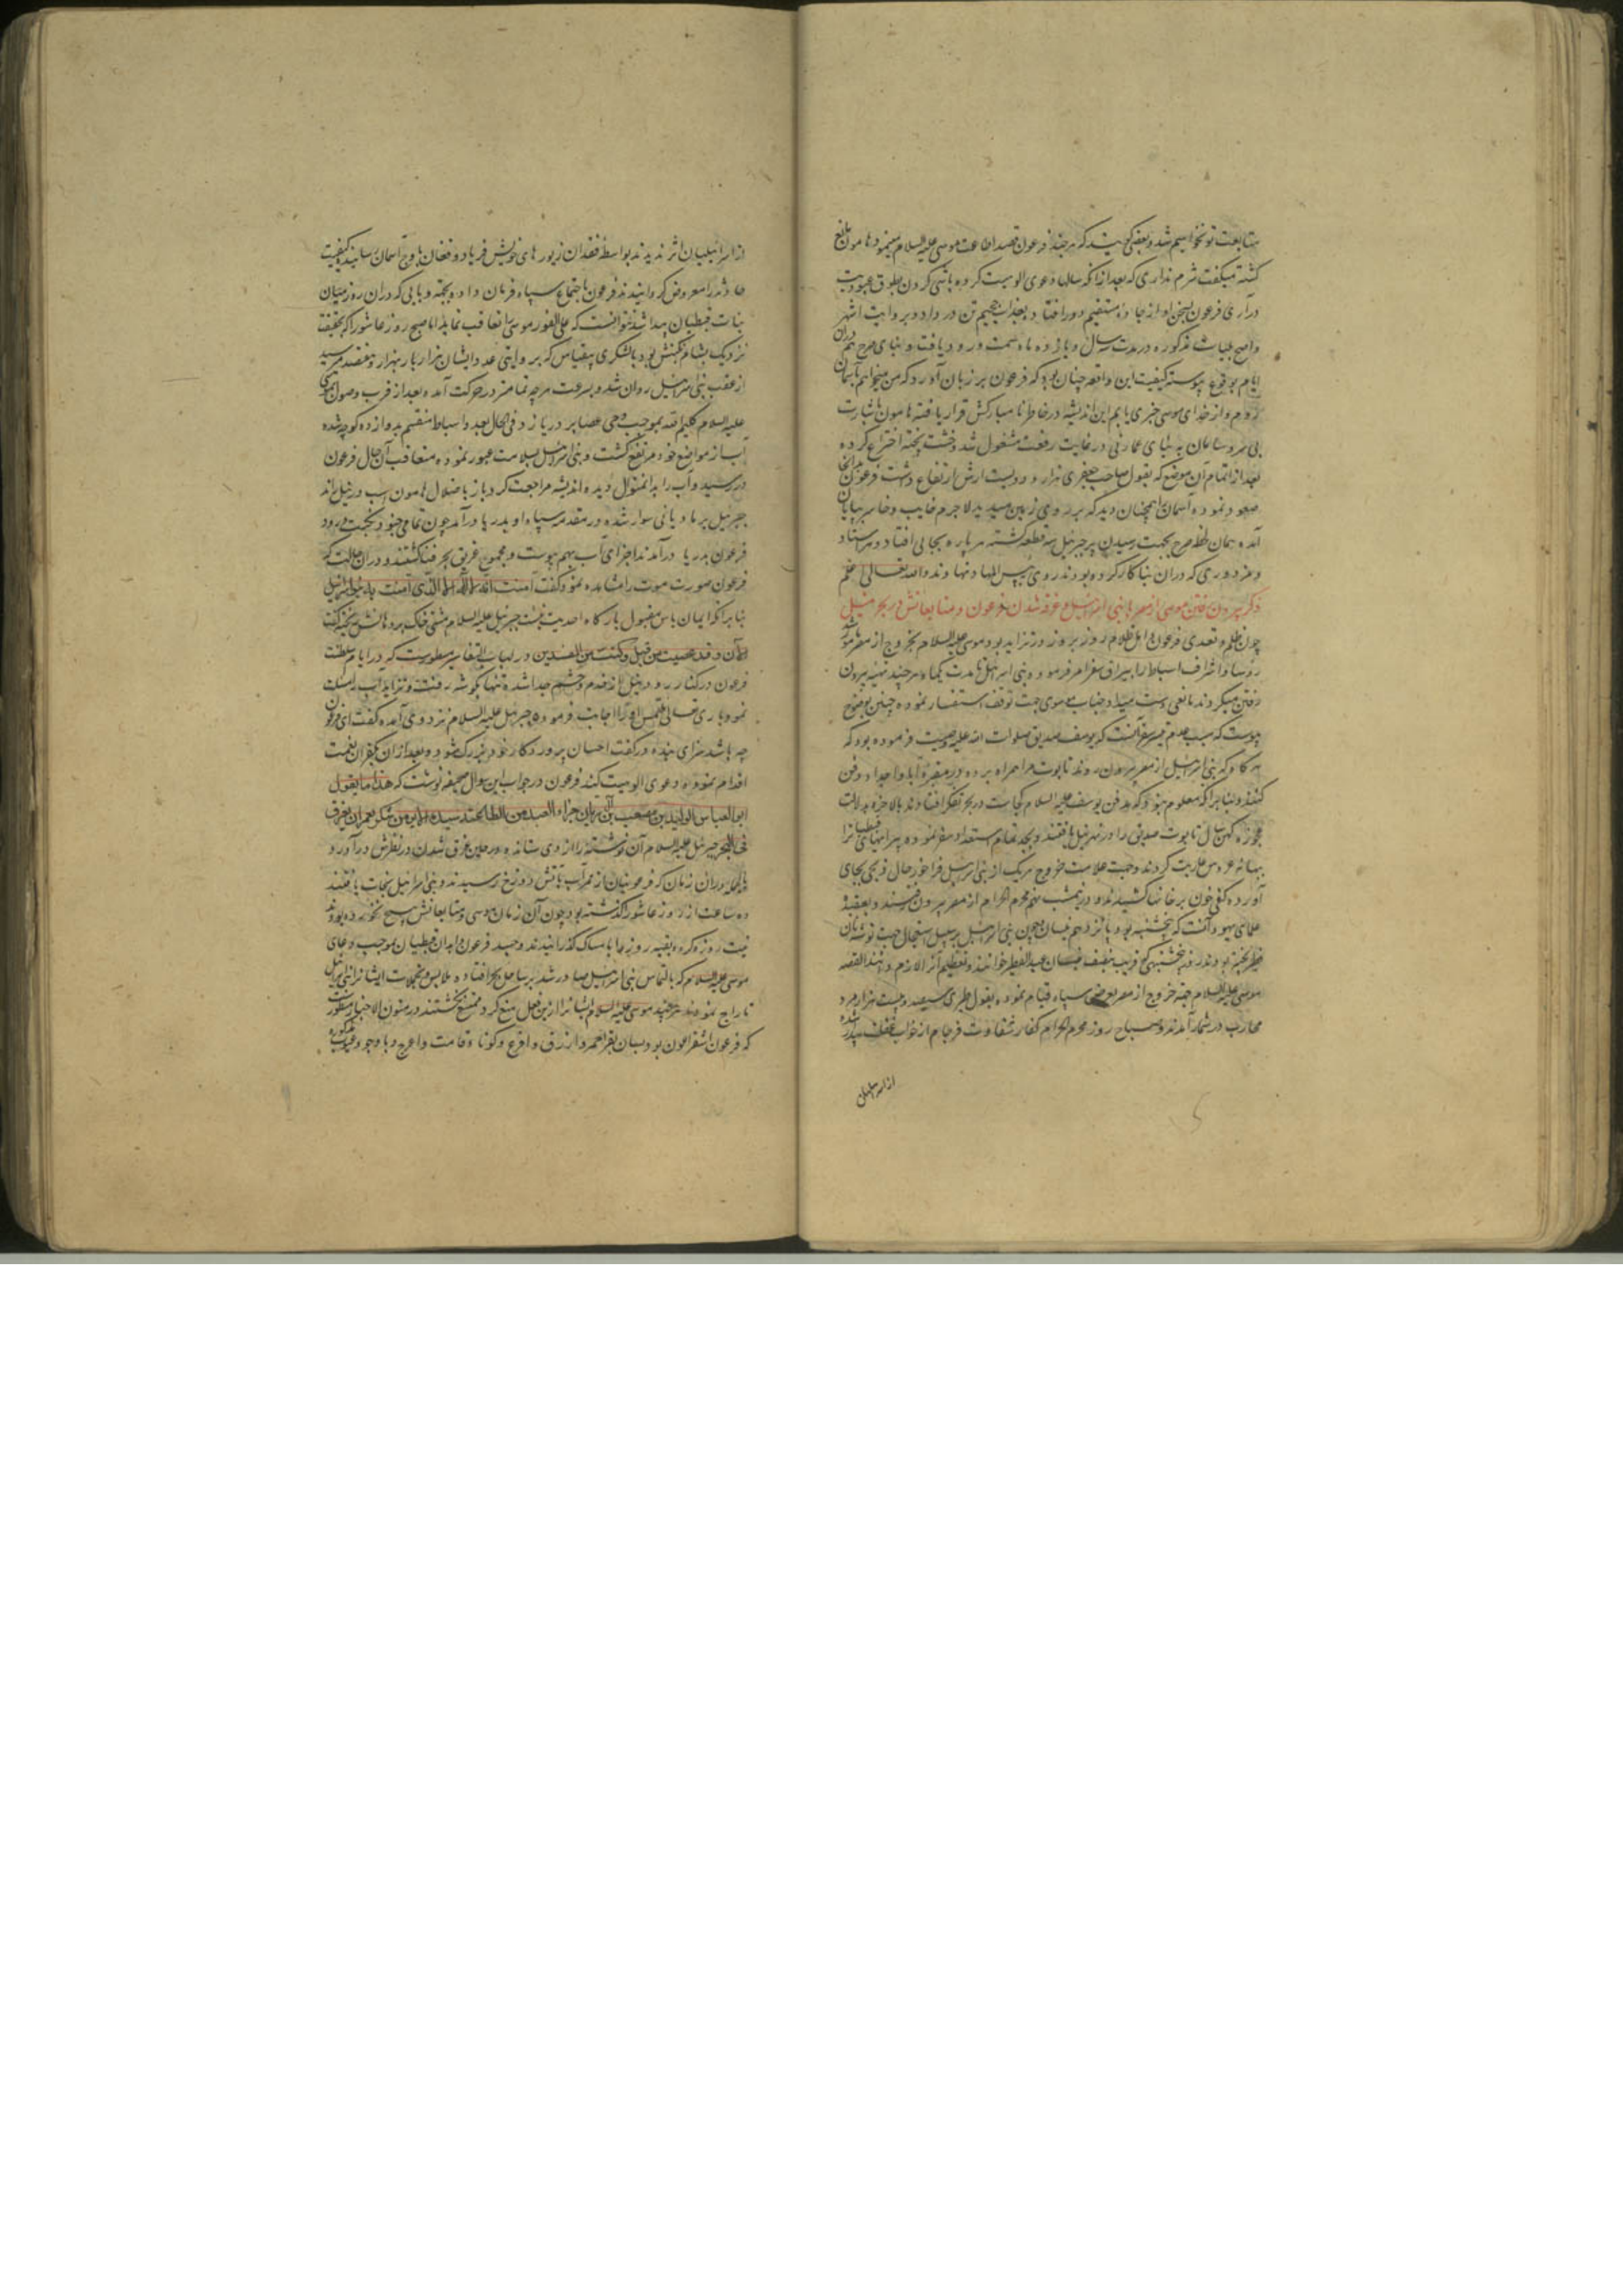 متابعت تو نخواهیم شد و بعضی گویند که هر چند فرعون قصد اطاعت موسی علیه السلام مینمود هامون مانع
گشته میگفت شرم نداری که بعد از آنکه سالها دعوی الوهیت کرده باشی گردن بطوق عبودیت
درآری فرعون بسخن او از جاده مستقیم دور افتاد و بعذاب جحیم تن در داد و بروایت اشهر
واصح بلیات مذکوره در مدت سه سال و یازده ماه سمت ورود یافت و بنای صرح هم دران
ایام بوقوع پیوسته کیفیت این واقعه چنان بود که فرعون بر زبان آورد که من میخواهم بآسمان
روم و از خدای موسی خبری یابم این اندیشه در خاطر نامبارکش قرار یافته هامون باشارت
بی سر و سامان به بنای عمارتی در غایت رفعت مشغول شد و خشت پخته اختراع کرده
بعد از اتمام آن موضع که بقول صاحب جعفری هزار و دویست ارش ارتفاع داشت فرعون بدانجا
صعود نموده آسمان را همچنان دید که بر روی زمین میدید لاجرم خایب و خاسر بپایان
آمد و همان لحظه صرح بجهت رسیدن پر جبرئیل سه قطعه گشته هر پاره بجائی افتاد و هر استاد
و مزدوری که دران بنا کار کرده بودند روی بپس المهاد نهادند والله تعالی اعلم
ذکر بیرون رفتن موسی از مصر با بنی اسرائیل و غرقه شدن فرعون و متابعانش در بحر نیل
چون ظلم و تعدی فرعون و اهل ظلام روز بروز در تزاید بود موسی علیه السلام بخروج از مصر مامور شد
رؤسا و اشراف اسباط را بیراق سفر امر فرمود و بنی اسرائیل تا مدت یکماه هر چند تهیه بیرون
رفتن میکردند مانعی دست میداد جناب موسوی جهت توقف استفسار نموده چنین بوضوح
پیوست که سبب عدم تیسر سفر آنست که یوسف صدیق صلوات الله علیه وصیت فرموده بود که
هر گاه که بنی اسرائیل از مصر بیرون روند تابوت مرا همراه برده در مقبره آبا و اجداد دفن
کنند و بنابر آنکه معلوم نبود که مدفن یوسف علیه السلام کجاست در بحر تفکر افتادند بالاخره بدلالت
عجوزه کهن سال تابوت صدیق را در نهر نیل یافتند و بجد تمام استعداد سفر نموده پیرایهای قبطیانرا
ببهانه عروس عاریت کردند و جهت علامت خروج هر یک از بنی اسرائیل فراخور حال ذبحی بجای
آورده کفی خون بر خانها کشیدند و در نیمشب نهم محرم الحرام از مصر بیرون رفتند و بعقیده
علمای یهود آنست که پنجشنبه بود پانزدهم نیسان و چون بنی اسرائیل بر سبیل استعجال جهت توشه نان
فطیر پخته بودند روز پنجشنبه که قریب بنصف نیسان عید الفطیر خوانند و تعظیم آنرا لازم دانند القصه
موسی علیه السلام جهة خروج از مصر بعرض سپاه قیام نموده بقول طبری سیصد و بیست هزار مرد
محارب در شمار آمدند و صباح روز محرم الحرام کفار شقاوت فرجام از خواب غفلت بیدار شده
از اسرائیلیان
از اسرائیلیان اثر ندیدند بواسطه فقدان زیورهای خویش فریاد و فغان باوج آسمان رسانیده کیفیت
حادثه را معروض گردانیدند فرعون باجتماع سپاه فرمان داده بجهة وبائی که دران روز میان
بنات قبطیان پیدا شد نتوانست که علی الفور موسی را تعاقب نماید اما صبح روز عاشورا که بحقیقت
نزدیک بشام نکبتش بود با لشکری بیقیاس که بروایتی عدد ایشان هزار بار هزار و هفتصد میرسید
از عقب بنی اسرائیل روان شد و بسرعت هر چه تمامتر در حرکت آمده بعد از قرب وصول موسی
علیه السلام کلیم الله بموجب وحی عصا بر دریا زد فی الحال بعدد اسباط منقسم بدوازده کوچه شده
آب از مواضع خود مرتفع گشت و بنی اسرائیل بسلامت عبور نموده متعاقب آن حال فرعون
در رسید و آب را بدانمنوال دیده اندیشه مراجعت کرد باز باضلال هامون اسب در نیل راند
جبرئیل بر مادیانی سوار شده در مقدمه سپاه او بدریا درآمد چون تمامی جنود نکبت ورود
فرعون بدریا درآمدند اجزای آب بهم پیوست و مجموع غریق بحر فنا گشتند و دران حالت که
فرعون صورت موت را مشاهده نمود گفت آمنت انه لا اله الا الذی آمنت به بنو اسرائیل
بنابر آنکه ایمان یاس مقبول بارگاه احدیت نیست جبرئیل علیه السلام مشتی خاک بر دهانش ریخته گفت
الآن وقد عصیت من قبل وکنت من المفسدین در لباب التفاسیر مسطورست که در ایام سلطنت
فرعون در کنار رود نیل از خدم و حشم جدا شده تنها بگوشه رفت و تزاید آب را مسئلت
نمود باری تعالی ملتمس او را اجابت فرموده جبرئیل علیه السلام نزد وی آمده گفت ای فرعون
چه باشد سزای بنده که در کنف احسان پروردگار خود بزرگ شود و بعد از ان بکفران نعمت
اقدام نموده دعوی الوهیت کند فرعون در جواب این سوال صحیفه نوشت که هذا ما یقول
ابو العباس الولید بن مصعب بن الریان جزاء العبد من الطاعة سیده ان یغرق
فی البحر جبرئیل علیه السلام آن نوشته را از وی ستانده در حین غرق شدن در نظرش درآورد
و بالجمله دران زمان که فرعونیان از ممر آب بآتش دوزخ رسیدند و بنی اسرائیل نجات یافتند
ده ساعت از روز عاشورا گذشته بود چون آن زمان موسی و متابعانش هیچ نخورده بودند
نیت روزه کرده بقیه روز را بامساک گذرانیدند و جسد فرعون و ابدان قبطیان بموجب دعای
موسی علیه السلام که بالتماس بنی اسرائیل صادر شد بر ساحل بحر افتاده ملابس و تجملات ایشانرا بنی اسرائیل
تاراج نمودند هر چند موسی علیه السلام ایشانرا ازین فعل منع کرد ممتنع نگشتند در متون الاخبار مسطورست
که فرعون اشقر اللون بود بسان بقر احمر و ازرق و اقرع و کوتاه قامت و اعرج و با وجود عیوب مذکوره